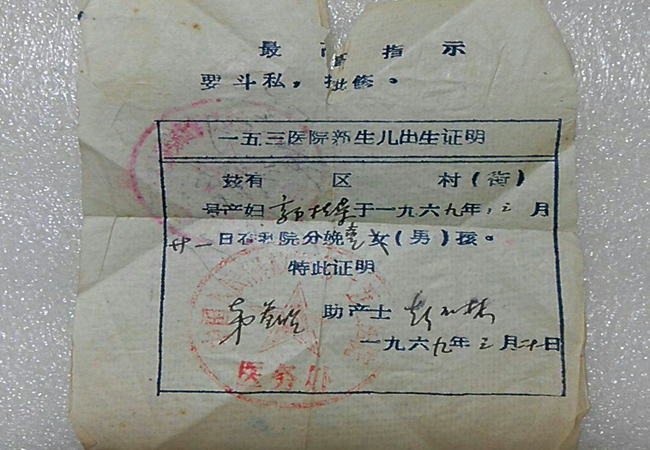 最高指示
要斗私，批修。
一五三医院新生儿出生证明
兹有 区 村（街）
号产妇 于一九六九年 三 月
廿一日在我院分娩壹女（男）孩。
特此证明
助产士
一九六九年三月二十一日
医务部